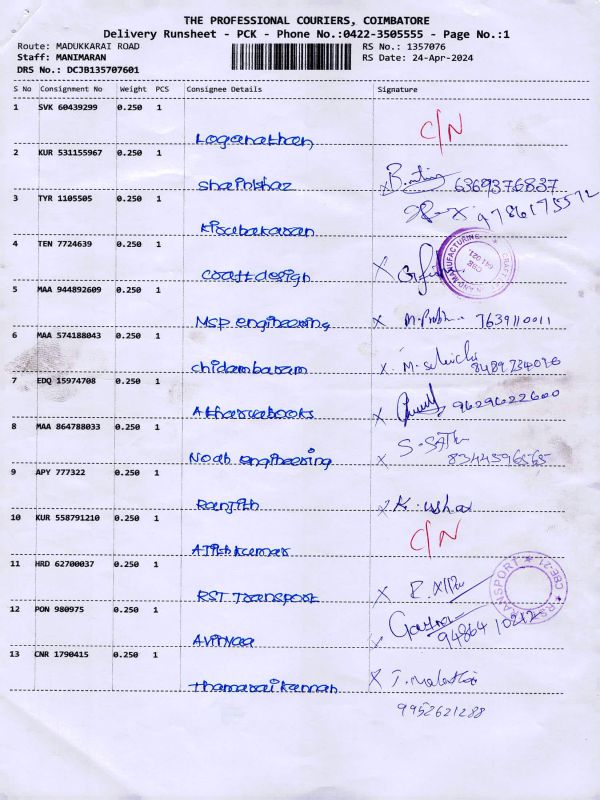 THE PROFESSIONAL COURIERS, COIMBATORE
Delivery Runsheet - PCK - Phone No.:0422-3505555 - Page No.:1
Route: MADUKKARAI ROAD RS No.: 1357076
Staff: MANIMARAN RS Date: 24-Apr-2024
DRS No.: DCJB135707601
S No Consignment No Weight PCS Consignee Details Signature
1 SVK 60439299 0.250 1
Loganathan C/N
2 KUR 531155967 0.250 1
6369376837
3 TYR 1105505 0.250 1
Kirubakaran
4 TEN 7724639 0.250 1
craft design
5 MAA 944892609 0.250 1
MSP engineering X M. Prabhu 7639110011
6 MAA 574188043 0.250 1
chidambaram X
7 EDQ 15974708 0.250 1
Atharvabooks X 9629622600
8 MAA 864788033 0.250 1
Noah engineering X
9 APY 777322 0.250 1
Ranjith X K. usha
10 KUR 558791210 0.250 1
Ajithkumar C/N
11 HRD 62700037 0.250 1
RST Transport X
12 PON 980975 0.250 1
13 CNR 1790415 0.250 1
Thamaraikannan X
9952621288